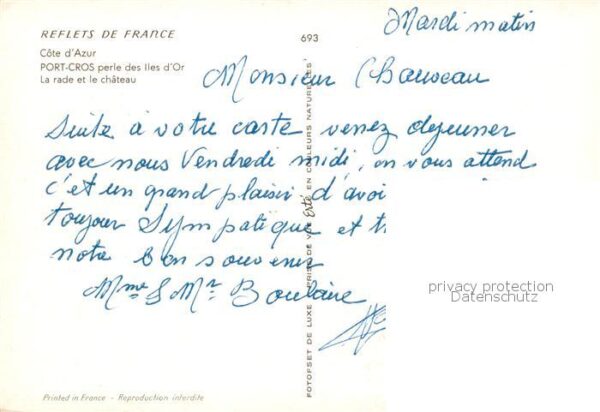 REFLETS DE FRANCE
693
Côte d'Azur
PORT-CROS perle des Iles d'Or
La rade et le château
Mardi matin
Monsieur Chauveau
Suite à votre carte venez dejeuner
avec nous Vendredi midi, on vous attend
c'et un grand plaisir d'avoi
toujour Sympatique et t
notre bon souvenir
Mme & Mr Boulaire
privacy protection
Datenschutz
FOTOFSET DE LUXE PRISE DE VUE EN COULEURS NATURELLES
Printed in France - Reproduction interdite